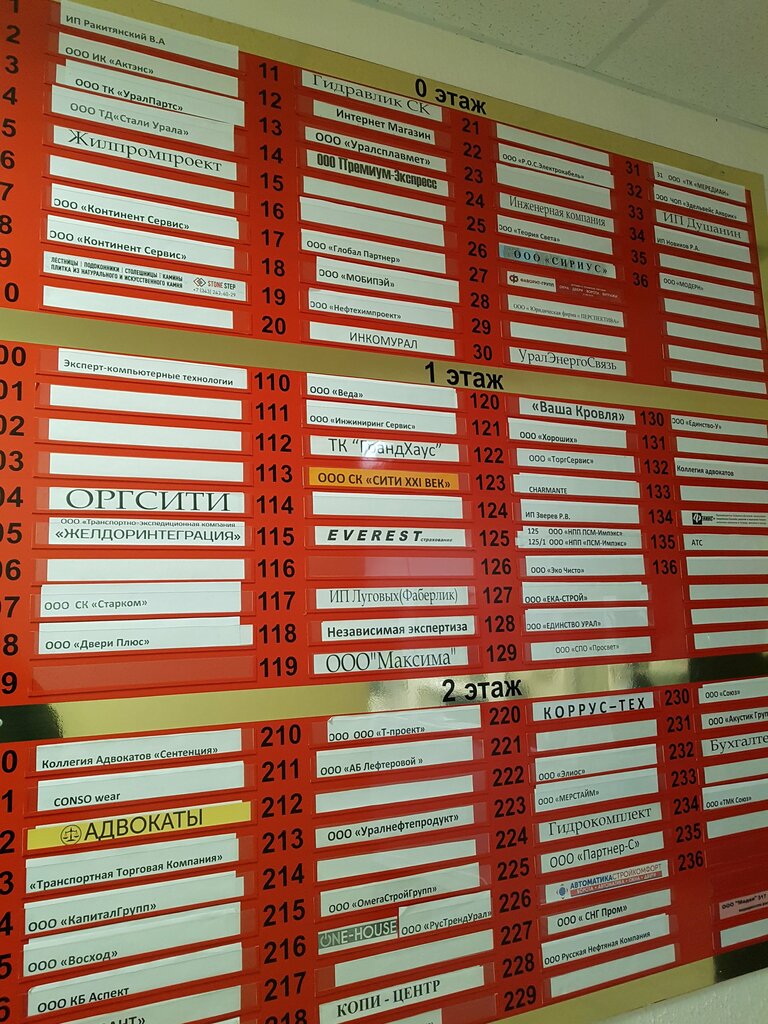 0 этаж
1
ИП Ракитянский В.А
2
ООО ИК «Актэнс»
3
ООО ТК «УралПартс»
4
ООО ТД«Стали Урала»
5
Жилпромпроект
6
7
ООО «Континент Сервис»
8
ООО «Континент Сервис»
9
ЛЕСТНИЦЫ | ПОДОКОННИКИ | СТОЛЕШНИЦЫ | КАМИНЫ
ПЛИТКА ИЗ НАТУРАЛЬНОГО И ИСКУССТВЕННОГО КАМНЯ
STONE STEP
+7 (343) 243-60-29
0
11
Гидравлик СК
12
Интернет Магазин
13
ООО «Уралсплавмет»
14
ООО Премиум-Экспресс
15
16
17
ООО «Глобал Партнер»
18
ООО «МОБИПЭЙ»
19
ООО «Нефтехимпроект»
20
ИНКОМУРАЛ
21
22
ООО «Р.О.С.Электрокабель»
23
24
Инженерная компания
25
ООО «Теория Света»
26
ООО «СИРИУС»
27
ФАВОРИТ-ГРУПП
28
ООО « Юридическая фирма « ПЕРСПЕКТИВА»
29
30
УралЭнергоСвязь
31
31 ООО «ТК «МЕРЕДИАН»
32
ООО ЧОП «Эдельвейс Аверик»
33
ИП Душанин
34
ИП Новиков Р.А.
35
36
ООО «МОДЕРН»
1 этаж
00
Эксперт-компьютерные технологии
01
02
03
04
ОРГСИТИ
05
ООО «Транспортно-экспедиционная компания
«ЖЕЛДОРИНТЕГРАЦИЯ»
06
07
ООО СК «Старком»
8
ООО «Двери Плюс»
9
110
ООО «Веда»
111
ООО «Инжиниринг Сервис»
112
ТК "ГрандХаус"
113
ООО СК «СИТИ XXI ВЕК»
114
115
EVEREST страхование
116
117
ИП Луговых(Фаберлик)
118
Независимая экспертиза
119
ООО"Максима"
120
«Ваша Кровля»
121
ООО «Хороших»
122
ООО «ТоргСервис»
123
CHARMANTE
124
ИП Зверев Р.В.
125
125 ООО «НПП ПСМ-Импэкс»
125/1 ООО «НПП «ПСМ-Импэкс»
126
ООО «Эко Чисто»
127
ООО «ЕКА-СТРОЙ»
128
ООО «ЕДИНСТВО УРАЛ»
129
ООО «СПО «Просвет»
130
ООО «Единство-У»
131
132
Коллегия адвокатов
133
134
135
АТС
136
2 этаж
0
Коллегия Адвокатов «Сентенция»
1
CONSO wear
2
АДВОКАТЫ
3
«Транспортная Торговая Компания»
4
ООО «КапиталГрупп»
5
ООО «Восход»
6
ООО КБ Аспект
210
ООО ООО «Т-проект»
211
ООО «АБ Лефтеровой »
212
213
ООО «Уралнефтепродукт»
214
215
ООО «ОмегаСтройГрупп»
216
ONE-HOUSE
ООО «РусТрендУрал»
217
КОПИ - ЦЕНТР
218
220
КОРРУС-ТЕХ
221
222
ООО «Элиос»
223
ООО «МЕРСТАЙМ»
224
Гидрокомплект
225
ООО «Партнер-С»
226
АВТОМАТИКАСТРОЙКОМФОРТ
227
ООО « СНГ Пром»
228
ООО Русская Нефтяная Компания
229
230
ООО «Союз»
231
ООО «Акустик Груп
232
Бухгалте
233
234
ООО «ТМК Союз»
235
236